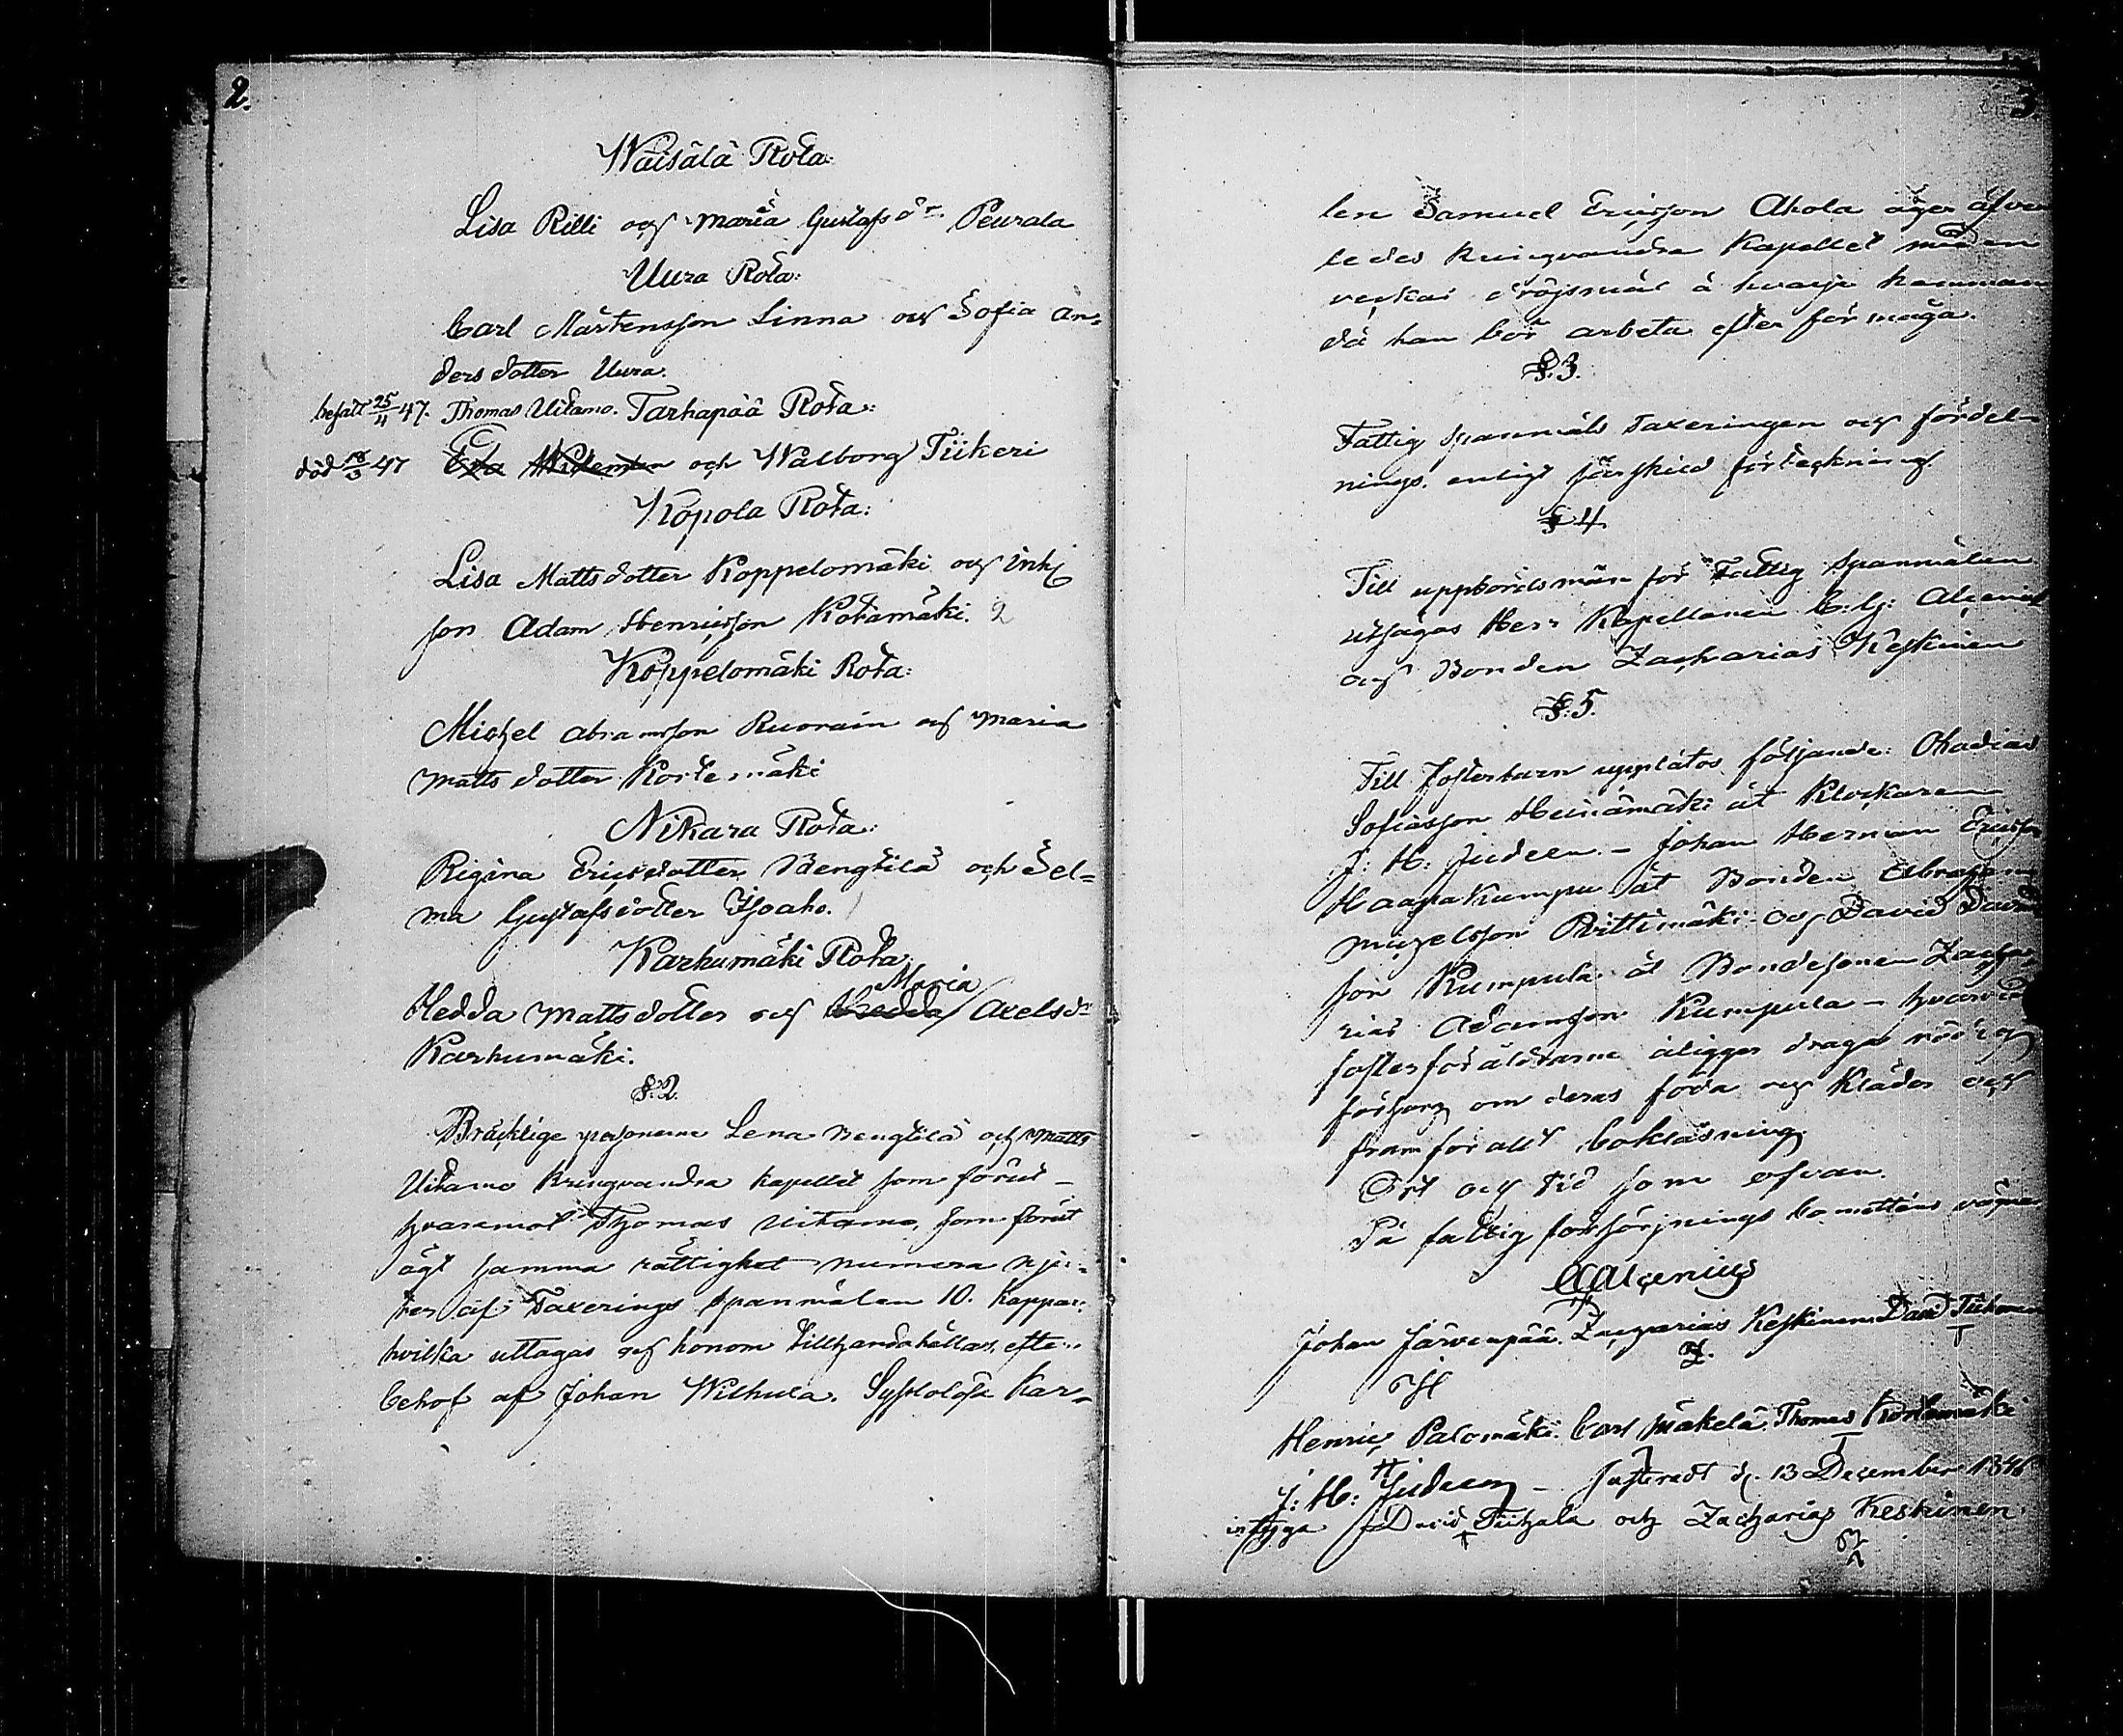 2.
Wäisälä Rota:
Lisa Rilli och Maria Gustafsdr Peurala
Uura Rota:
Carl Mårtensson Linna och Sofia An=
dersdotter Uura.
befalt 25/4 47. Thomas Uitamo. Tarhapää Rota:
död 18/3 47 Eva Wideman och Walborg Tiikeri
Kopola Rota:
Lisa Mattsdotter Koppelomäki och Inhy
son Adam Henricsson Kotamäki. 2
Koppelomäki Rota:
Michel Abramsson Ruorain och Maria
Mattsdotter Kortemäki
Nikara Rota:
Rigina Ericsdotter Bengtilä och Sel=
ma Gustafsdotter Isoaho.
Karhumäki Rota
Maria
Hedda Mattsdotter och Hedda Axelsdr
Karhumäki.
§.2.
Bräcklige personerne Lena Bengtilä och Matts
Uitamo kringvandra kapellet som förut –
hvaremot Thomas Uitamo, som förut
ägt samma rättighet numera nju=
ter af Taxerings spanmålen 10. kappar
hvilka uttagas och honom tillhandahållas efter
behof af Johan Wilhula. Sysslolöse kar=
3.
len Samuel Ericsson Ahola äger äfven
ledes kringvandra Kapellet med en
veckas dröjsmål å hvarje hemman
då han bör arbeta efter förmåga.
§.3.
Fattig spanmåls taxeringen och fördel=
nings. enligt särskild förteckning.
§4.
Till uppbördsmän för Fattig spanmålen
utsågos Herr Kapellanen C. G. Alcenius
och Bonden Zacharias Keskinen
§.5.
Till Fosterbarn upplätos följande: Obadias
Sofiasson Heinämäki åt Klockaren
J: H: Judeen. – Johan Herman Ericsson
Haapakumpu åt Bonden Abraham
Michelsson Riittimäki och David Davids
son Kumpula åt Bondesonen Zacha
rias Adamsson Kumpula – hvarvid
fosterföräldrarne åligger draga nödig
försorg om deras föda och kläder och
framför allt bokläsning.
Ort och tid som ofvan.
På fattigförsörjnings comitténs vägnar
Alcenius
Johan Järvenpää. Zacharias Keskinen. David Tiihonen
Henric Palomäki. Carl Mäkelä. Thomas Kortemäki
J: H: Judeen – Justeradt d. 13 December 1846
intyga David Tiihala och Zacharias Keskinen.